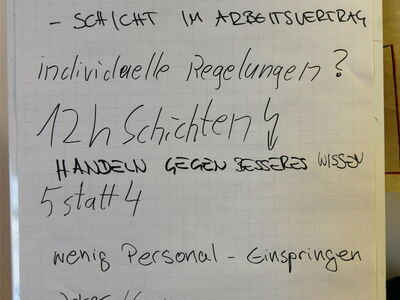 - SCHICHT IM ARBEITSVERTRAG
individuelle Regelungen?
12h Schichten
HANDELN GEGEN BESSERES WISSEN
5 statt 4
wenig Personal - Einspringen